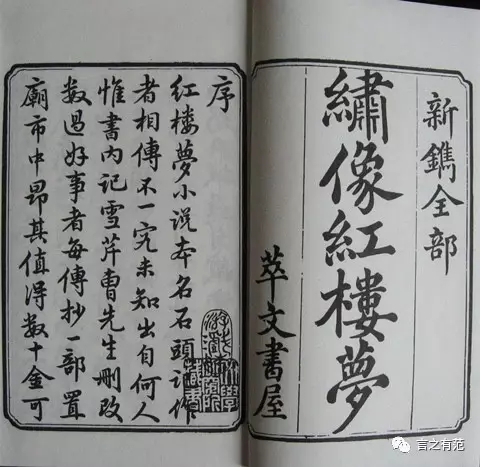 新鐫全部
繡像紅樓夢
萃文書屋
序
紅樓夢小說本名石頭記作
者相傳不一究未知出自何人
惟書內記雪芹曹先生刪改
数過好事者每傳抄一部置
廟市中昂其值得数十金可
言之有范